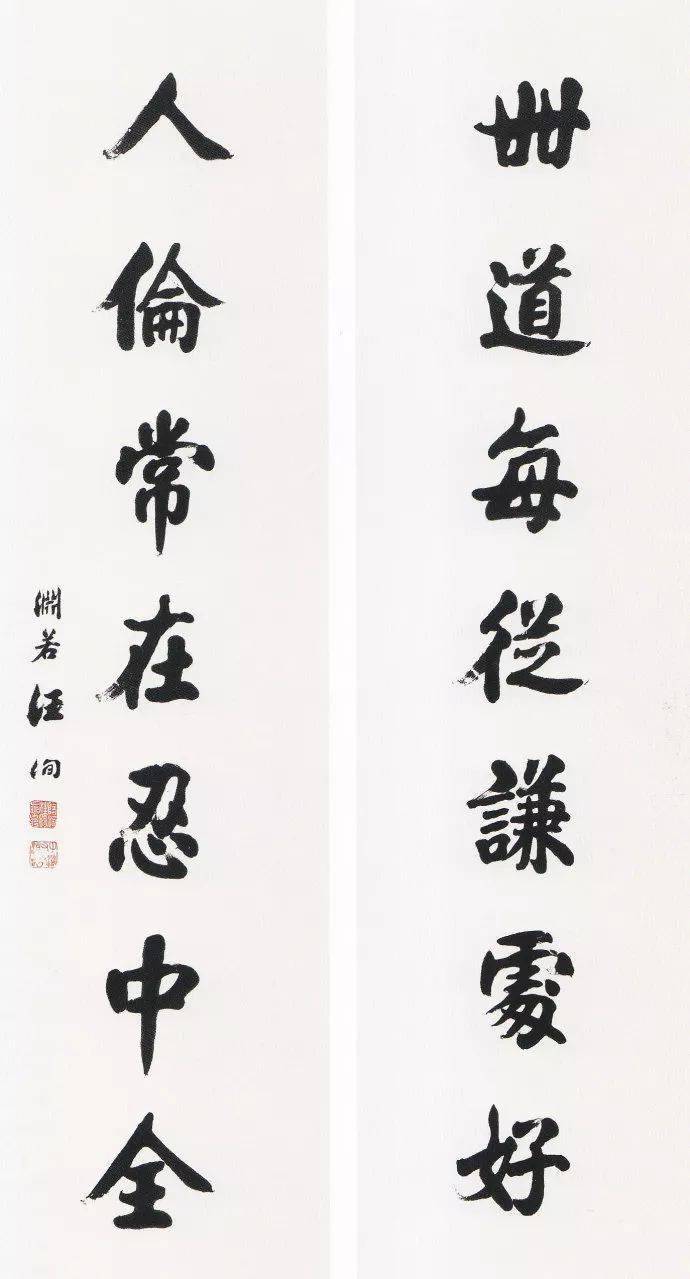 世道每從謙處好
人倫常在忍中全
淵若汪洵